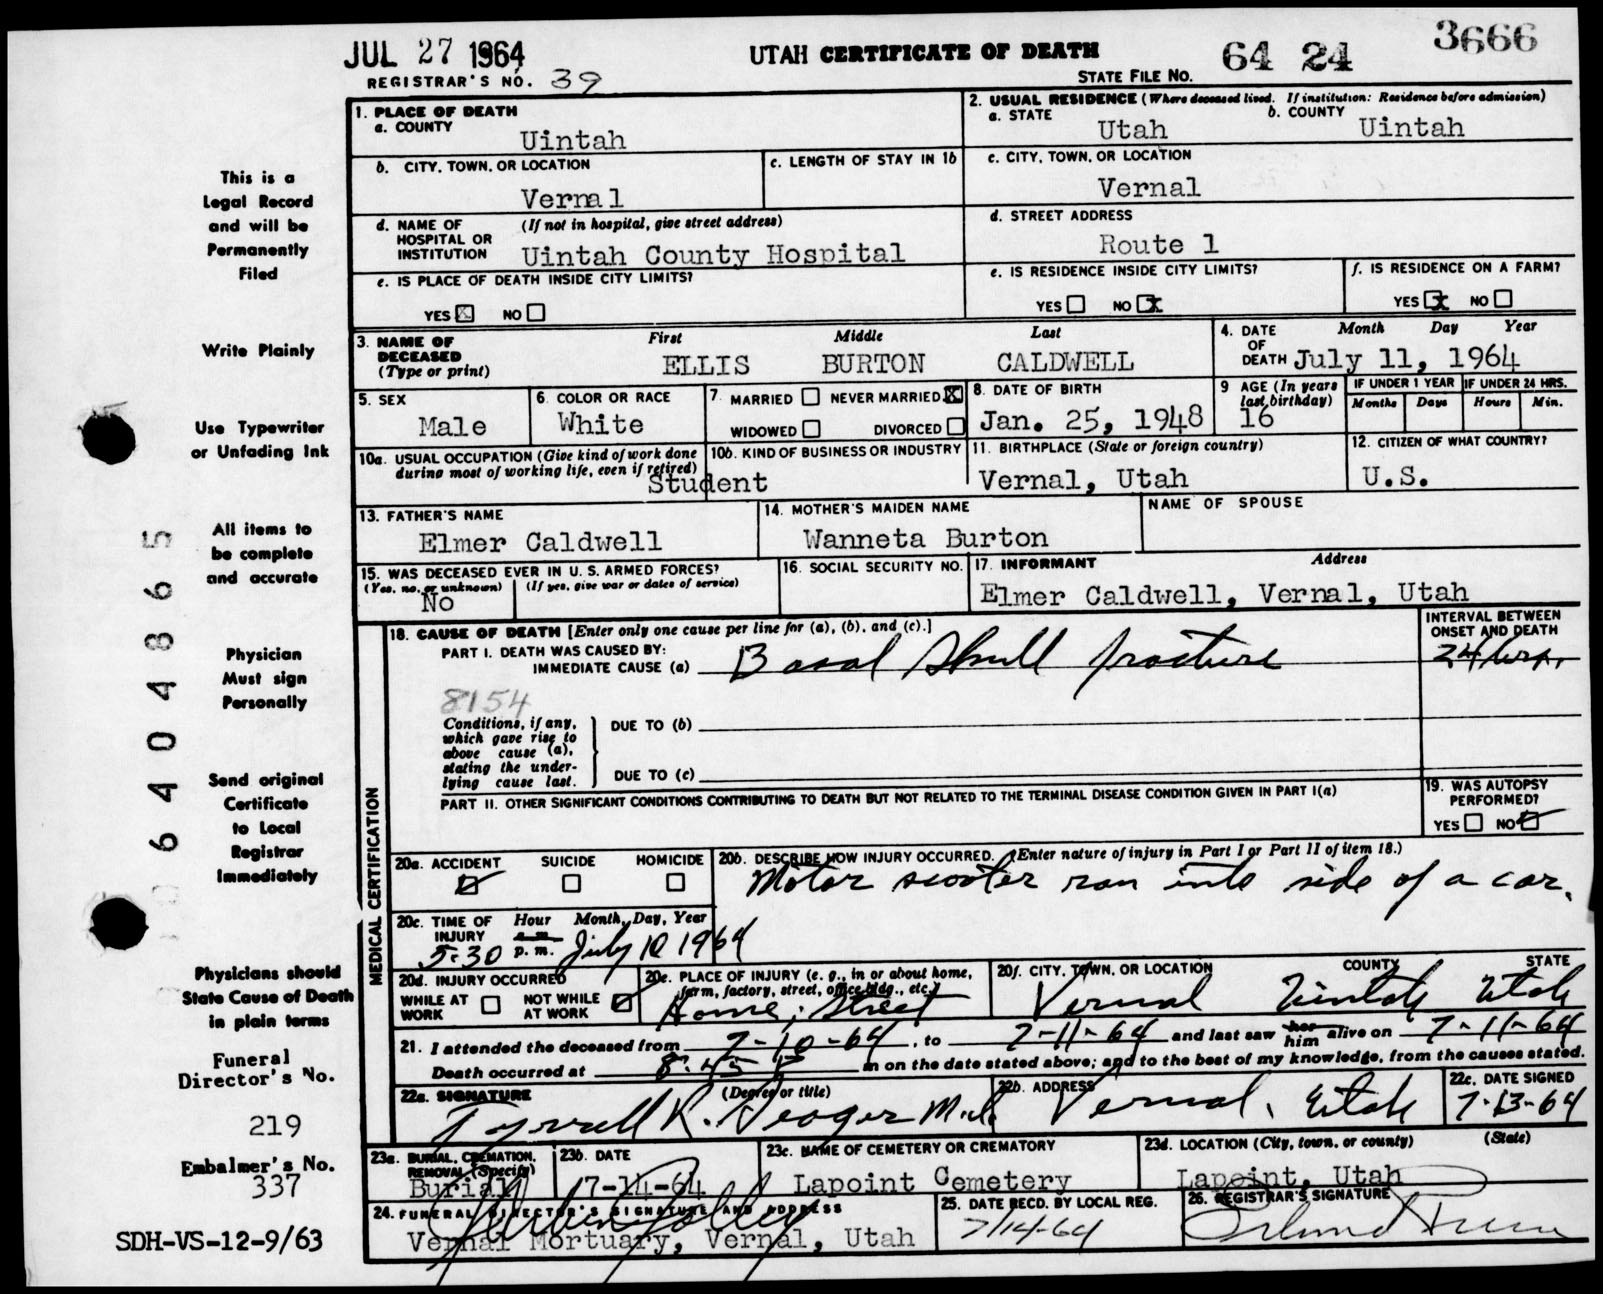 JUL 27 1964
UTAH CERTIFICATE OF DEATH
64 24
3666
REGISTRAR'S NO. 39
STATE FILE NO.
1. PLACE OF DEATH
a. COUNTY
Uintah
2. USUAL RESIDENCE (Where deceased lived. If institution: Residence before admission)
a. STATE
Utah
b. COUNTY
Uintah
b. CITY, TOWN, OR LOCATION
Vernal
c. LENGTH OF STAY IN 1b
c. CITY, TOWN, OR LOCATION
Vernal
d. NAME OF HOSPITAL OR INSTITUTION
(If not in hospital, give street address)
Uintah County Hospital
d. STREET ADDRESS
Route 1
e. IS PLACE OF DEATH INSIDE CITY LIMITS?
YES X NO
e. IS RESIDENCE INSIDE CITY LIMITS?
YES NO X
f. IS RESIDENCE ON A FARM?
YES X NO
3. NAME OF DECEASED (Type or print)
First Middle Last
ELLIS BURTON CALDWELL
4. DATE OF DEATH
Month Day Year
July 11, 1964
5. SEX
Male
6. COLOR OR RACE
White
7. MARRIED NEVER MARRIED X
WIDOWED DIVORCED
8. DATE OF BIRTH
Jan. 25, 1948
9 AGE (In years last birthday)
16
IF UNDER 1 YEAR
Months Days
IF UNDER 24 HRS.
Hours Min.
10a. USUAL OCCUPATION (Give kind of work done during most of working life, even if retired)
Student
10b. KIND OF BUSINESS OR INDUSTRY
11. BIRTHPLACE (State or foreign country)
Vernal, Utah
12. CITIZEN OF WHAT COUNTRY?
U.S.
13. FATHER'S NAME
Elmer Caldwell
14. MOTHER'S MAIDEN NAME
Wanneta Burton
NAME OF SPOUSE
15. WAS DECEASED EVER IN U.S. ARMED FORCES?
(Yes, no, or unknown) (If yes, give war or dates of service)
No
16. SOCIAL SECURITY NO.
17. INFORMANT Address
Elmer Caldwell, Vernal, Utah
MEDICAL CERTIFICATION
18. CAUSE OF DEATH [Enter only one cause per line for (a), (b), and (c).]
INTERVAL BETWEEN ONSET AND DEATH
PART I. DEATH WAS CAUSED BY:
IMMEDIATE CAUSE (a) Basal Skull fracture
24 hrs.
8154
Conditions, if any, which gave rise to above cause (a), stating the underlying cause last.
DUE TO (b)
DUE TO (c)
PART II. OTHER SIGNIFICANT CONDITIONS CONTRIBUTING TO DEATH BUT NOT RELATED TO THE TERMINAL DISEASE CONDITION GIVEN IN PART I(a)
19. WAS AUTOPSY PERFORMED?
YES NO
20a. ACCIDENT SUICIDE HOMICIDE
20b. DESCRIBE HOW INJURY OCCURRED. (Enter nature of injury in Part I or Part II of item 18.)
Motor scooter ran into side of a car.
20c. TIME OF INJURY
Hour Month, Day, Year
a.m.
5:30 p.m. July 10 1964
20d. INJURY OCCURRED
WHILE AT WORK NOT WHILE AT WORK
20e. PLACE OF INJURY (e. g., in or about home, farm, factory, street, office bldg., etc.)
Home; Street
20f. CITY, TOWN, OR LOCATION COUNTY STATE
Vernal Uintah Utah
21. I attended the deceased from 7-10-64, to 7-11-64 and last saw her him alive on 7-11-64
Death occurred at 8:45 P m on the date stated above; and to the best of my knowledge, from the causes stated.
22a. SIGNATURE (Degree or title)
Tyrrell R. Seager M.D.
22b. ADDRESS
Vernal, Utah
22c. DATE SIGNED
7-13-64
23a. BURIAL, CREMATION, REMOVAL (Specify)
Burial
23b. DATE
7-14-64
23c. NAME OF CEMETERY OR CREMATORY
Lapoint Cemetery
23d. LOCATION (City, town, or county) (State)
Lapoint, Utah
24. FUNERAL DIRECTOR'S SIGNATURE AND ADDRESS
Vernal Mortuary, Vernal, Utah
25. DATE RECD. BY LOCAL REG.
7/14-64
26. REGISTRAR'S SIGNATURE
This is a
Legal Record
and will be
Permanently
Filed
Write Plainly
Use Typewriter
or Unfading Ink
All items to
be complete
and accurate
Physician
Must sign
Personally
Send original
Certificate
to Local
Registrar
Immediately
Physicians should
State Cause of Death
in plain terms
Funeral
Director's No.
219
Embalmer's No.
337
SDH-VS-12-9/63
64048655